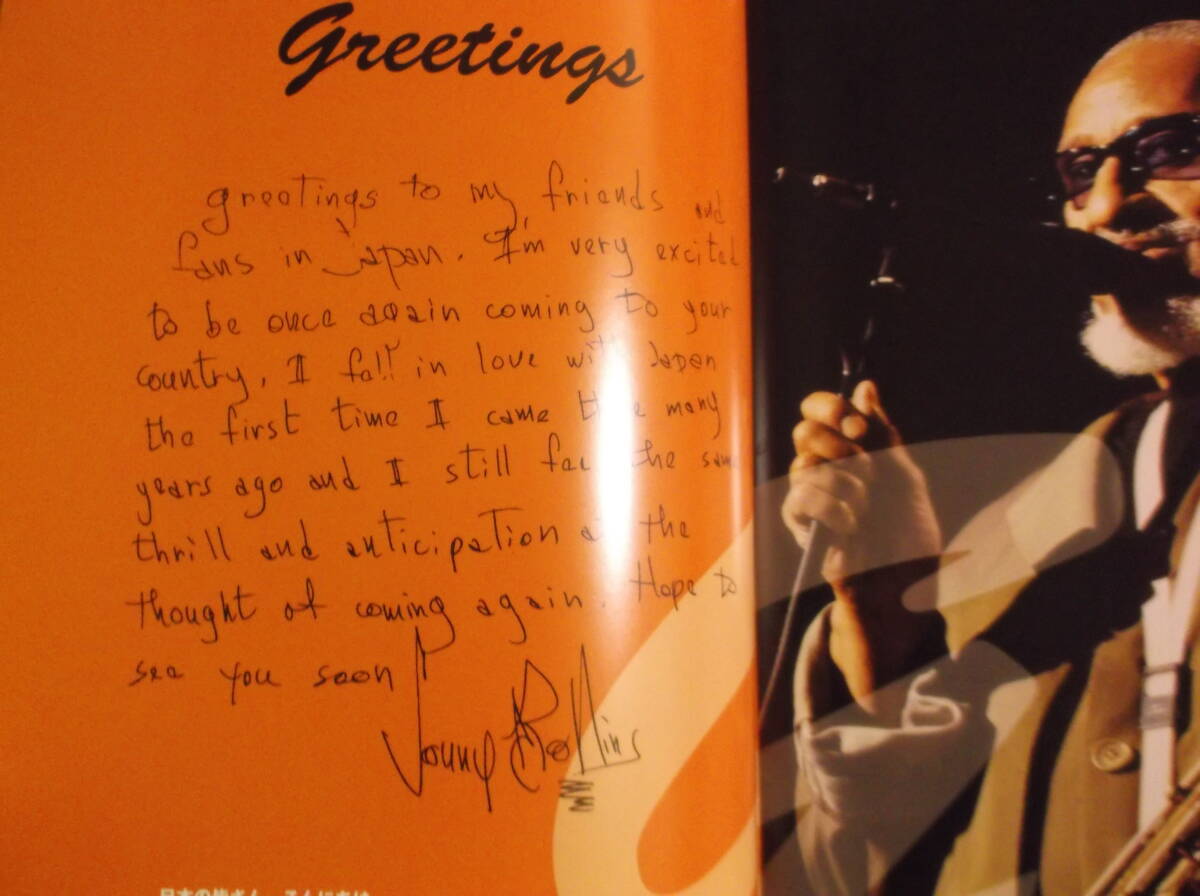 Greetings
greetings to my friends and
fans in Japan. I'm very excited
to be once again coming to your
country, I fall in love with Japan
the first time I came many
years ago and I still the same
thrill and anticipation at the
thought of coming again. Hope to
see you soon
Sonny Rollins
日本の皆さん、こんにちは